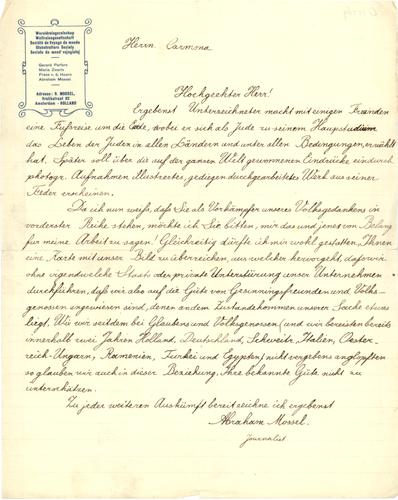 Wereldreisgenootschap
Weltreisegesellschaft
Société de Voyage du monde
Globetrotters Society
Societo de mond' vojaĝistoj
Gerard Perfors
Marie Zwarts
Frans v. d. Hoorn
Abraham Mossel
Adresse: A. MOSSEL,
Amsterdam - HOLLAND
Herrn Carmona
Hochgeehrter Herr!
Ergebenst Unterzeichneter macht mit einigen Freunden
eine Fußreise um die Erde, wobei er sich als Jude zu seinem Hauptstudium
das Leben der Juden in allen Ländern und unter allen Bedingungen, erwählt
hat. Später soll über die auf der ganzen Welt gewonnenen Eindrücke ein durch
photogr. Aufnahmen illustriertes, gediegen durchgearbeitetes Werk aus seiner
Feder erscheinen.
Da ich nun weiß, daß Sie als Vorkämpfer unseres Volksgedankens in
vorderster Reihe stehen, möchte ich Sie bitten, mir das und jenes von Belang
für meine Arbeit zu sagen. Gleichzeitig dürfte ich mir wohl gestatten, Ihnen
eine Karte mit unser Bild zu überreichen, aus welcher hervorgeht, daß wir
ohne irgendwelche Staats oder private Unterstützung unser Unternehmen
durchführen, daß wir also auf die Güte von Gesinnungsfreunden und Volks-
genossen angewiesen sind, denen am Zustandekommen unserer Sache etwas
liegt. Wie wir seitdem bei Glaubens und Volksgenossen (und wir bereisten bereits
innerhalb zwei Jahren Holland, Deutschland, Schweitz, Italien, Oester-
reich-Ungarn, Rumenien, Turkei und Egypten) nicht vergebens anglopften
so glauben wir auch in dieser Beziehung, Ihre bekannte Güte nicht zu
unterschätzen.
Zu jeder weiteren Auskünft bereit zeichne ich ergebenst
Abraham Mossel.
Journalist